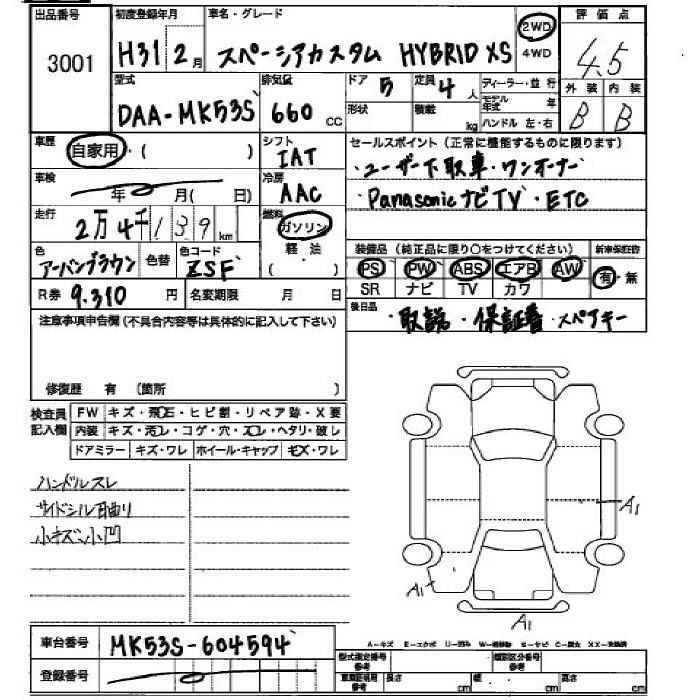 出品番号 初度登録年月 車名・グレード 評価点
3001 H31 2月 スペーシアカスタム HYBRID XS 2WD 4WD 4.5
型式 排気量 ドア 定員 ディーラー・並行 外装 内装
DAA-MK53S 660 cc 5 4人 モデル年式 年 B B
形状 積載 kg ハンドル 左・右
車歴 自家用・( ) シフト IAT
セールスポイント(正常に機能するものに限ります)
・ユーザー下取車・ワンオーナー
車検 年 月( 日) 冷房 AAC
・Panasonicナビ TV・ETC
走行 2万4千139km 燃料 ガソリン 軽油 ( )
色 アーバンブラウン 色替 色コード ZSF
装備品(純正品に限り○をつけてください) 新車保証書
PS PW ABS エアB AW 有・無
SR ナビ TV カワ
R券 9,310円 名変期限 月 日
後日品 ・取説・保証書・スペアキー
注意事項申告欄(不具合内容等は具体的に記入して下さい)
修復歴 有 (箇所 )
検査員記入欄 FW キズ・飛石・ヒビ割・リペア跡・X要
内装 キズ・汚レ・コゲ・穴・スレ・ヘタリ・破レ
ドアミラー キズ・ワレ ホイール・キャップ キズ・ワレ
ハンドルスレ
サイドシル曲り
小キズ小凹
A1
A1
A1
車台番号 MK53S-604594
A-キズ E-エクボ U-凹み W-補修跡 S-サビ C-腐食 XX-交換済
登録番号
型式指定番号 参考 類別区分番号 参考
車庫証明用 参考 長さ cm 幅 cm 高さ cm